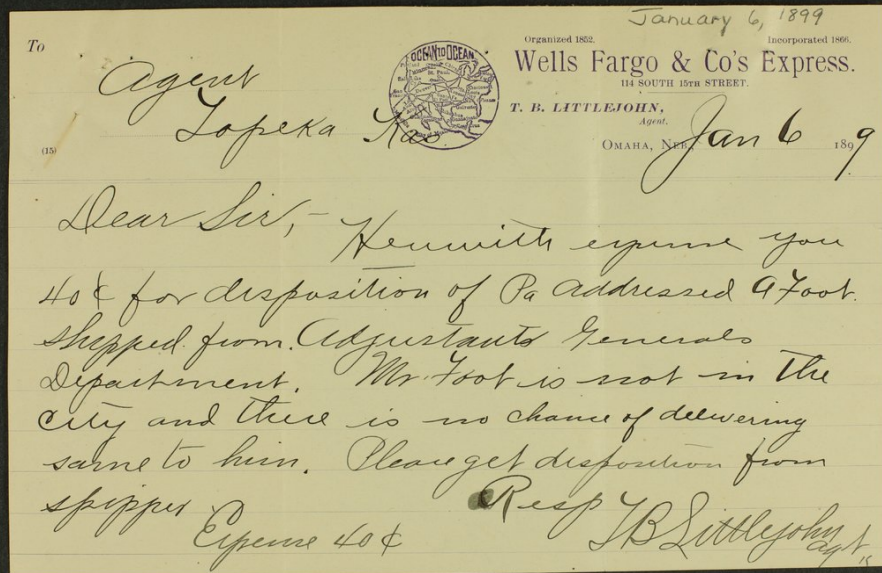 January 6, 1899
Organized 1852. Incorporated 1866.
To
OCEAN TO OCEAN
Wells Fargo & Co's Express.
114 SOUTH 15TH STREET.
T. B. LITTLEJOHN,
Agent.
Agent
Topeka Kas
(15)
OMAHA, NEB. Jan 6 1899
Dear Sir,-
Herewith expense you
40¢ for disposition of Pa addressed A Foot.
shipped from Adjustants Generals
Department. Mr. Foot is not in the
city and there is no chance of delivering
same to him. Please get disposition from
shipper
Resp TB Littlejohn
agt
Expense 40¢